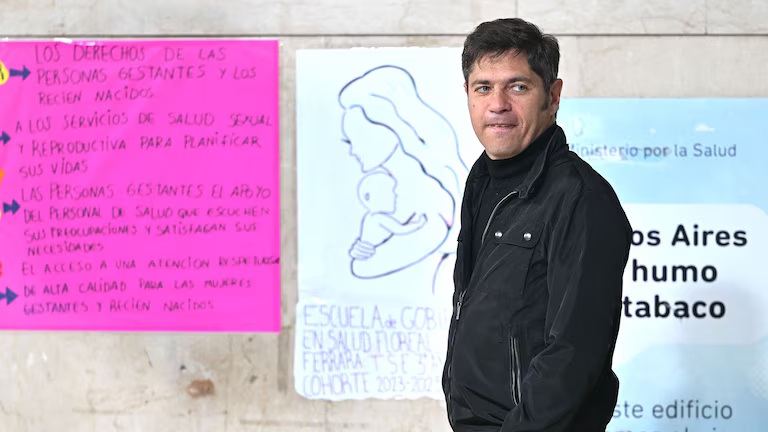 LOS DERECHOS DE LAS
PERSONAS GESTANTES Y LOS
RECIEN NACIDOS
A LOS SERVICIOS DE SALUD SEXUAL
Y REPRODUCTIVA PARA PLANIFICAR
SUS VIDAS
LAS PERSONAS GESTANTES EL APOYO
DEL PERSONAL DE SALUD QUE ESCUCHEN
SUS PREOCUPACIONES Y SATISFAGAN SUS
NECESIDADES
EL ACCESO A UNA ATENCION RESPETUOSA
DE ALTA CALIDAD PARA LAS MUJERES
GESTANTES Y RECIEN NACIDOS
ESCUELA de GOBI
EN SALUD FLOREAL
FERRARA. T S E 3°
COHORTE 2023-202
Ministerio por la Salud
os Aires
humo
tabaco
ste edificio